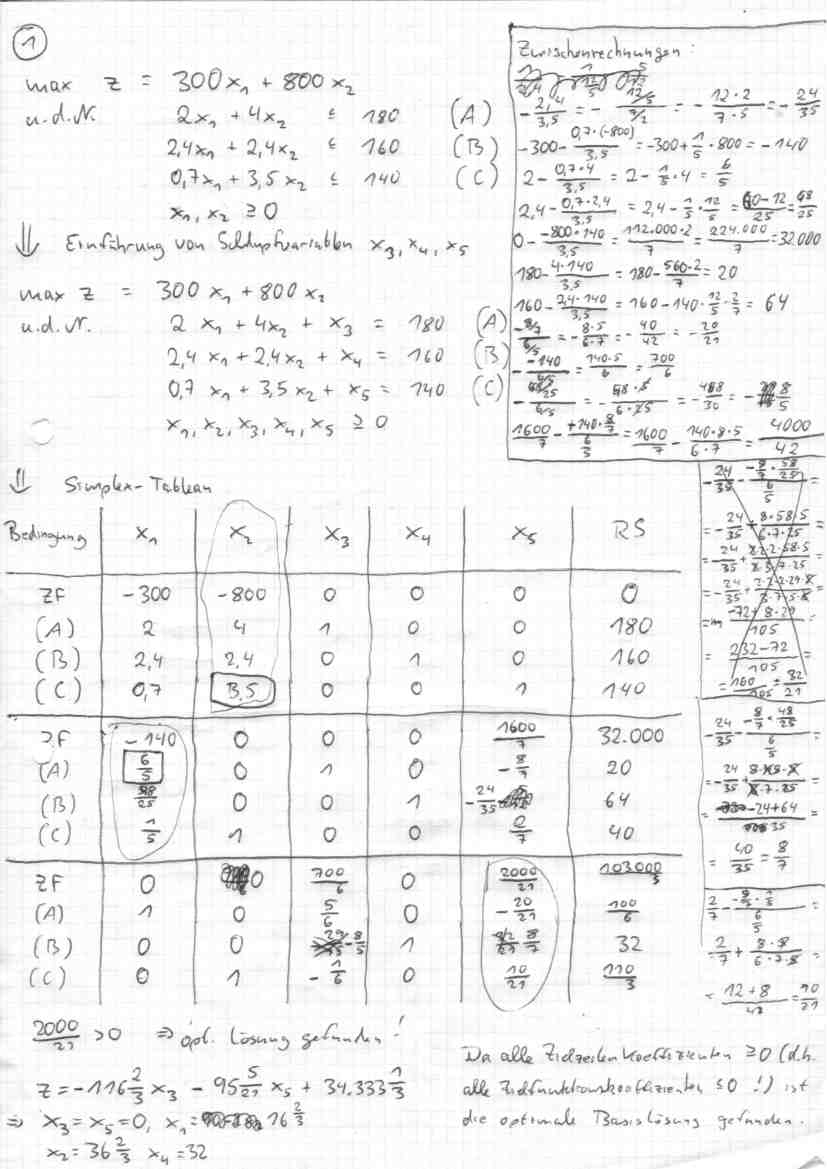 1
max z = 300x₁ + 800x₂
u.d.N. 2x₁ + 4x₂ ≤ 180 (A)
2,4x₁ + 2,4x₂ ≤ 160 (B)
0,7x₁ + 3,5x₂ ≤ 140 (C)
x₁, x₂ ≥ 0
⇓ Einführung von Schlupfvariablen x₃, x₄, x₅
max z = 300x₁ + 800x₂
u.d.N. 2x₁ + 4x₂ + x₃ = 180 (A)
2,4x₁ + 2,4x₂ + x₄ = 160 (B)
0,7x₁ + 3,5x₂ + x₅ = 140 (C)
x₁, x₂, x₃, x₄, x₅ ≥ 0
Zwischenrechnungen:
-2,4/3,5 = - (12/5)/(7/2) = - (12·2)/(7·5) = - 24/35
-300 - (0,7·(-800))/3,5 = -300 + 1/5·800 = -140
2 - (0,7·4)/3,5 = 2 - 1/5·4 = 6/5
2,4 - (0,7·2,4)/3,5 = 2,4 - 1/5·12/5 = (60-12)/25 = 48/25
0 - (-800·140)/3,5 = (112.000·2)/7 = 224.000/7 = 32.000
180 - (4·140)/3,5 = 180 - (560·2)/7 = 20
160 - (2,4·140)/3,5 = 160 - 140·12/5·2/7 = 64
(-8/7)/(6/5) = - (8·5)/(6·7) = - 40/42 = - 20/21
- (-140)/(6/5) = (140·5)/6 = 700/6
- (48/25)/(6/5) = - (48·5)/(6·25) = - 8/5
⇓ Simplex-Tableau
Bedingung x₁ x₂ x₃ x₄ x₅ RS
ZF -300 -800 0 0 0 0
(A) 2 4 1 0 0 180
(B) 2,4 2,4 0 1 0 160
(C) 0,7 3,5 0 0 1 140
ZF -140 0 0 0 1600/7 32.000
(A) 6/5 0 1 0 -8/7 20
(B) 48/25 0 0 1 -24/35 64
(C) 1/5 1 0 0 2/7 40
ZF 0 0 700/6 0 2000/21 103.000/3
(A) 1 0 5/6 0 -20/21 100/6
(B) 0 0 -8/5 1 8/7 32
(C) 0 1 -1/6 0 10/21 110/3
= 40/35 = 8/7
= (12+8)/42 = 10/21
2000/21 > 0 ⇒ opt. Lösung gefunden!
z = -116 2/3 x₃ - 95 5/21 x₅ + 34.333 1/3
⇒ x₃ = x₅ = 0, x₁ = 16 2/3
x₂ = 36 2/3 x₄ = 32
Da alle Zielzeilenkoeffizienten ≥ 0 (d.h.
alle Zielfunktionskoeffizienten ≤ 0 !) ist
die optimale Basislösung gefunden.